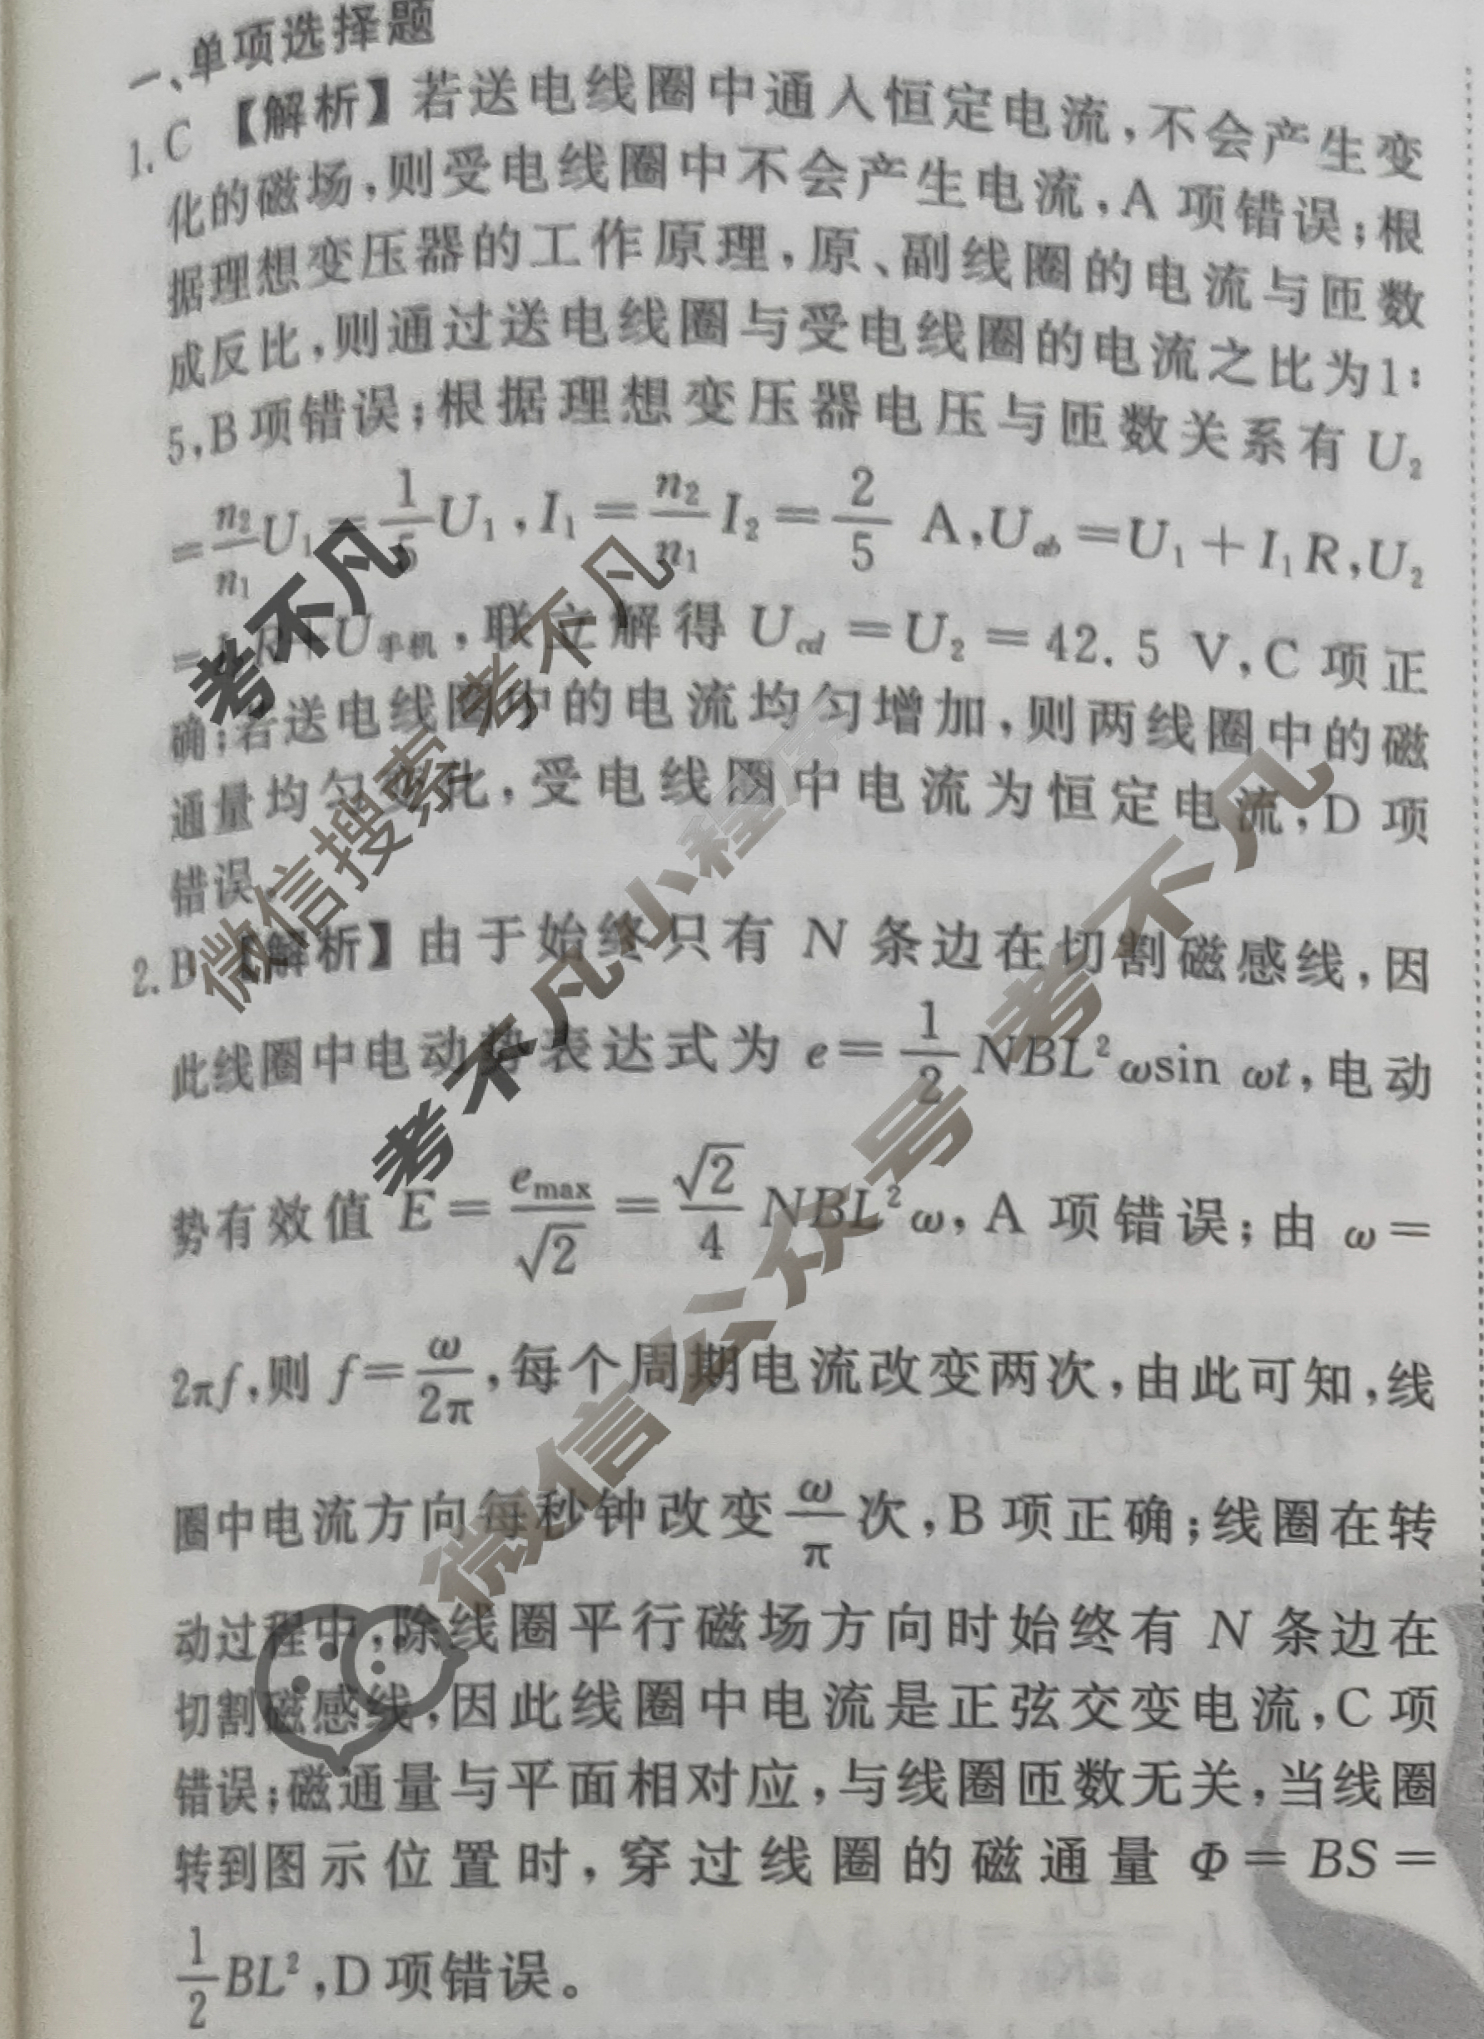 一、单项选择题
1. C 【解析】若送电线圈中通入恒定电流，不会产生变
化的磁场，则受电线圈中不会产生电流，A 项错误；根
据理想变压器的工作原理，原、副线圈的电流与匝数
成反比，则通过送电线圈与受电线圈的电流之比为1：
5，B项错误；根据理想变压器电压与匝数关系有 U₂
=n₂/n₁ U₁=1/5 U₁，I₁=n₂/n₁ I₂=2/5 A，U_ab=U₁+I₁R，U₂
= R+U手机，联立解得 U_cd=U₂=42.5 V，C 项正
确；若送电线圈中的电流均匀增加，则两线圈中的磁
通量均匀变化，受电线圈中电流为恒定电流，D 项
错误。
2. B 【解析】由于始终只有 N 条边在切割磁感线，因
此线圈中电动势表达式为 e=1/2 NBL²ωsin ωt，电动
势有效值 E=e_max/√2=√2/4 NBL²ω，A 项错误；由 ω=
2πf，则 f=ω/2π，每个周期电流改变两次，由此可知，线
圈中电流方向每秒钟改变ω/π次，B项正确；线圈在转
动过程中，除线圈平行磁场方向时始终有 N 条边在
切割磁感线，因此线圈中电流是正弦交变电流，C项
错误；磁通量与平面相对应，与线圈匝数无关，当线圈
转到图示位置时，穿过线圈的磁通量 Φ=BS=
1/2 BL²，D项错误。
考不凡
微信搜索 考不凡
考不凡小程序
微信公众号 考不凡